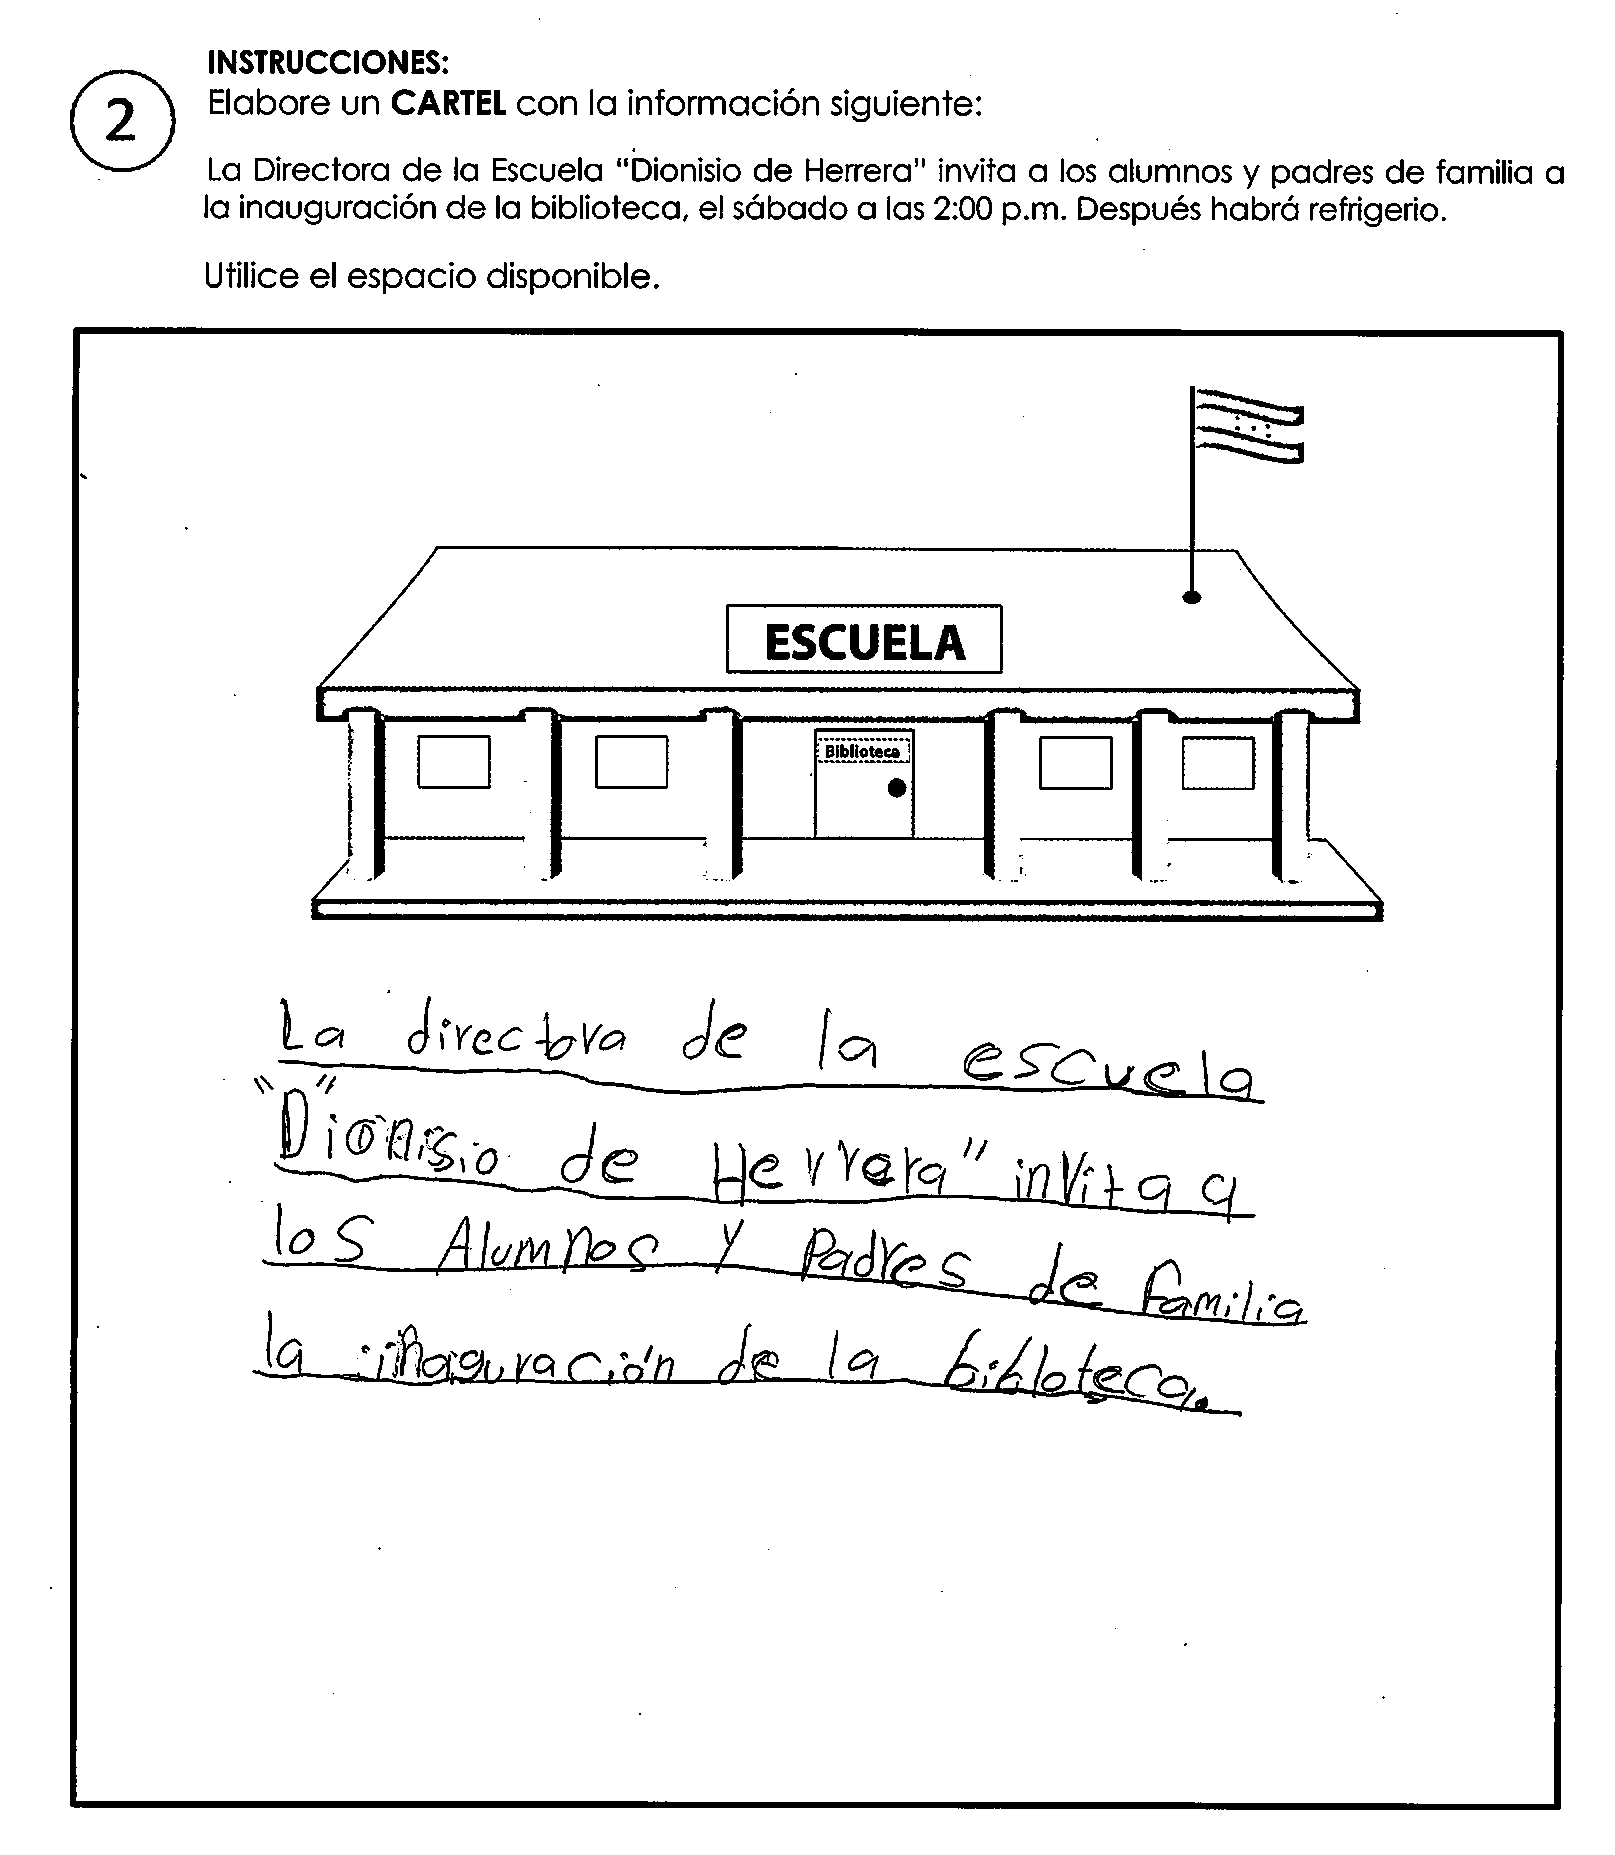 INSTRUCCIONES:
2
Elabore un CARTEL con la información siguiente:
La Directora de la Escuela "Dionisio de Herrera" invita a los alumnos y padres de familia a
la inauguración de la biblioteca, el sábado a las 2:00 p.m. Después habrá refrigerio.
Utilice el espacio disponible.
ESCUELA
Biblioteca
La directora de la escuela
"D"ionisio de Herrera" invita a
los Alumnos y Padres de familia
la inaguración de la bibloteca.